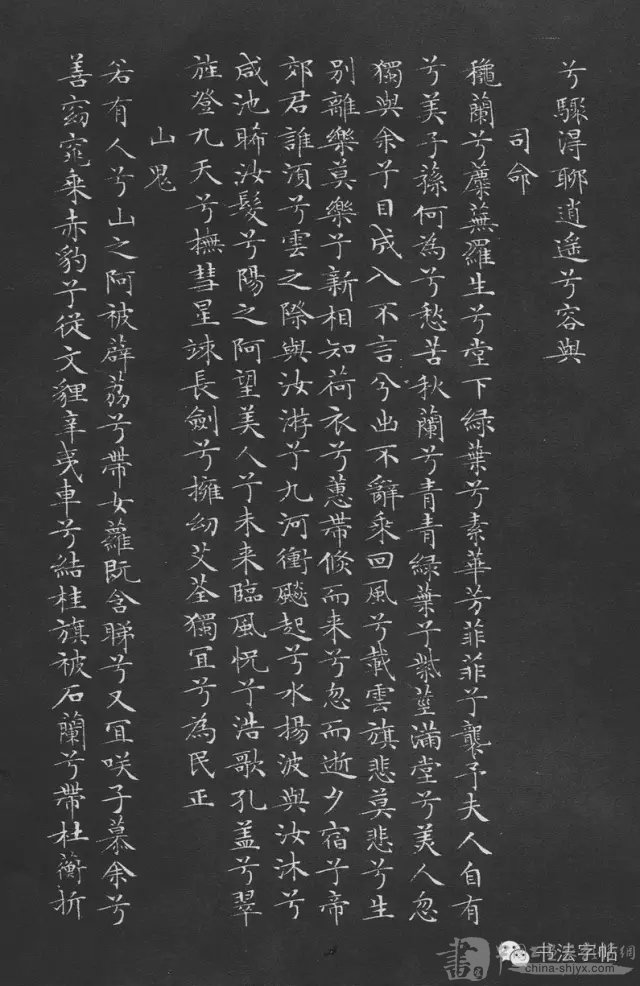 兮驟得聊逍遙兮容與
司命
穐蘭兮蘪蕪羅生兮堂下綠葉兮素華芳菲菲兮襲予夫人自有
兮美子蓀何為兮愁苦秋蘭兮青青綠葉兮紫莖滿堂兮美人忽
獨與余兮目成入不言兮出不辭乘回風兮載雲旗悲莫悲兮生
別離樂莫樂兮新相知荷衣兮蕙帶倐而来兮忽而逝夕宿兮帝
郊君誰湏兮雲之際與汝游兮九河衝飈起兮水揚波與汝沐兮
咸池晞汝髮兮陽之阿望美人兮未来臨風怳兮浩歌孔盖兮翠
旌登九天兮撫彗星竦長劍兮擁幼艾荃獨冝兮為民正
山鬼
若有人兮山之阿被薜荔兮帶女蘿既含睇兮又冝咲子慕余兮
善窈窕乘赤豹兮從文貍辛夷車兮結桂旗被石蘭兮帶杜蘅折
书法字帖
china-shjyx.com